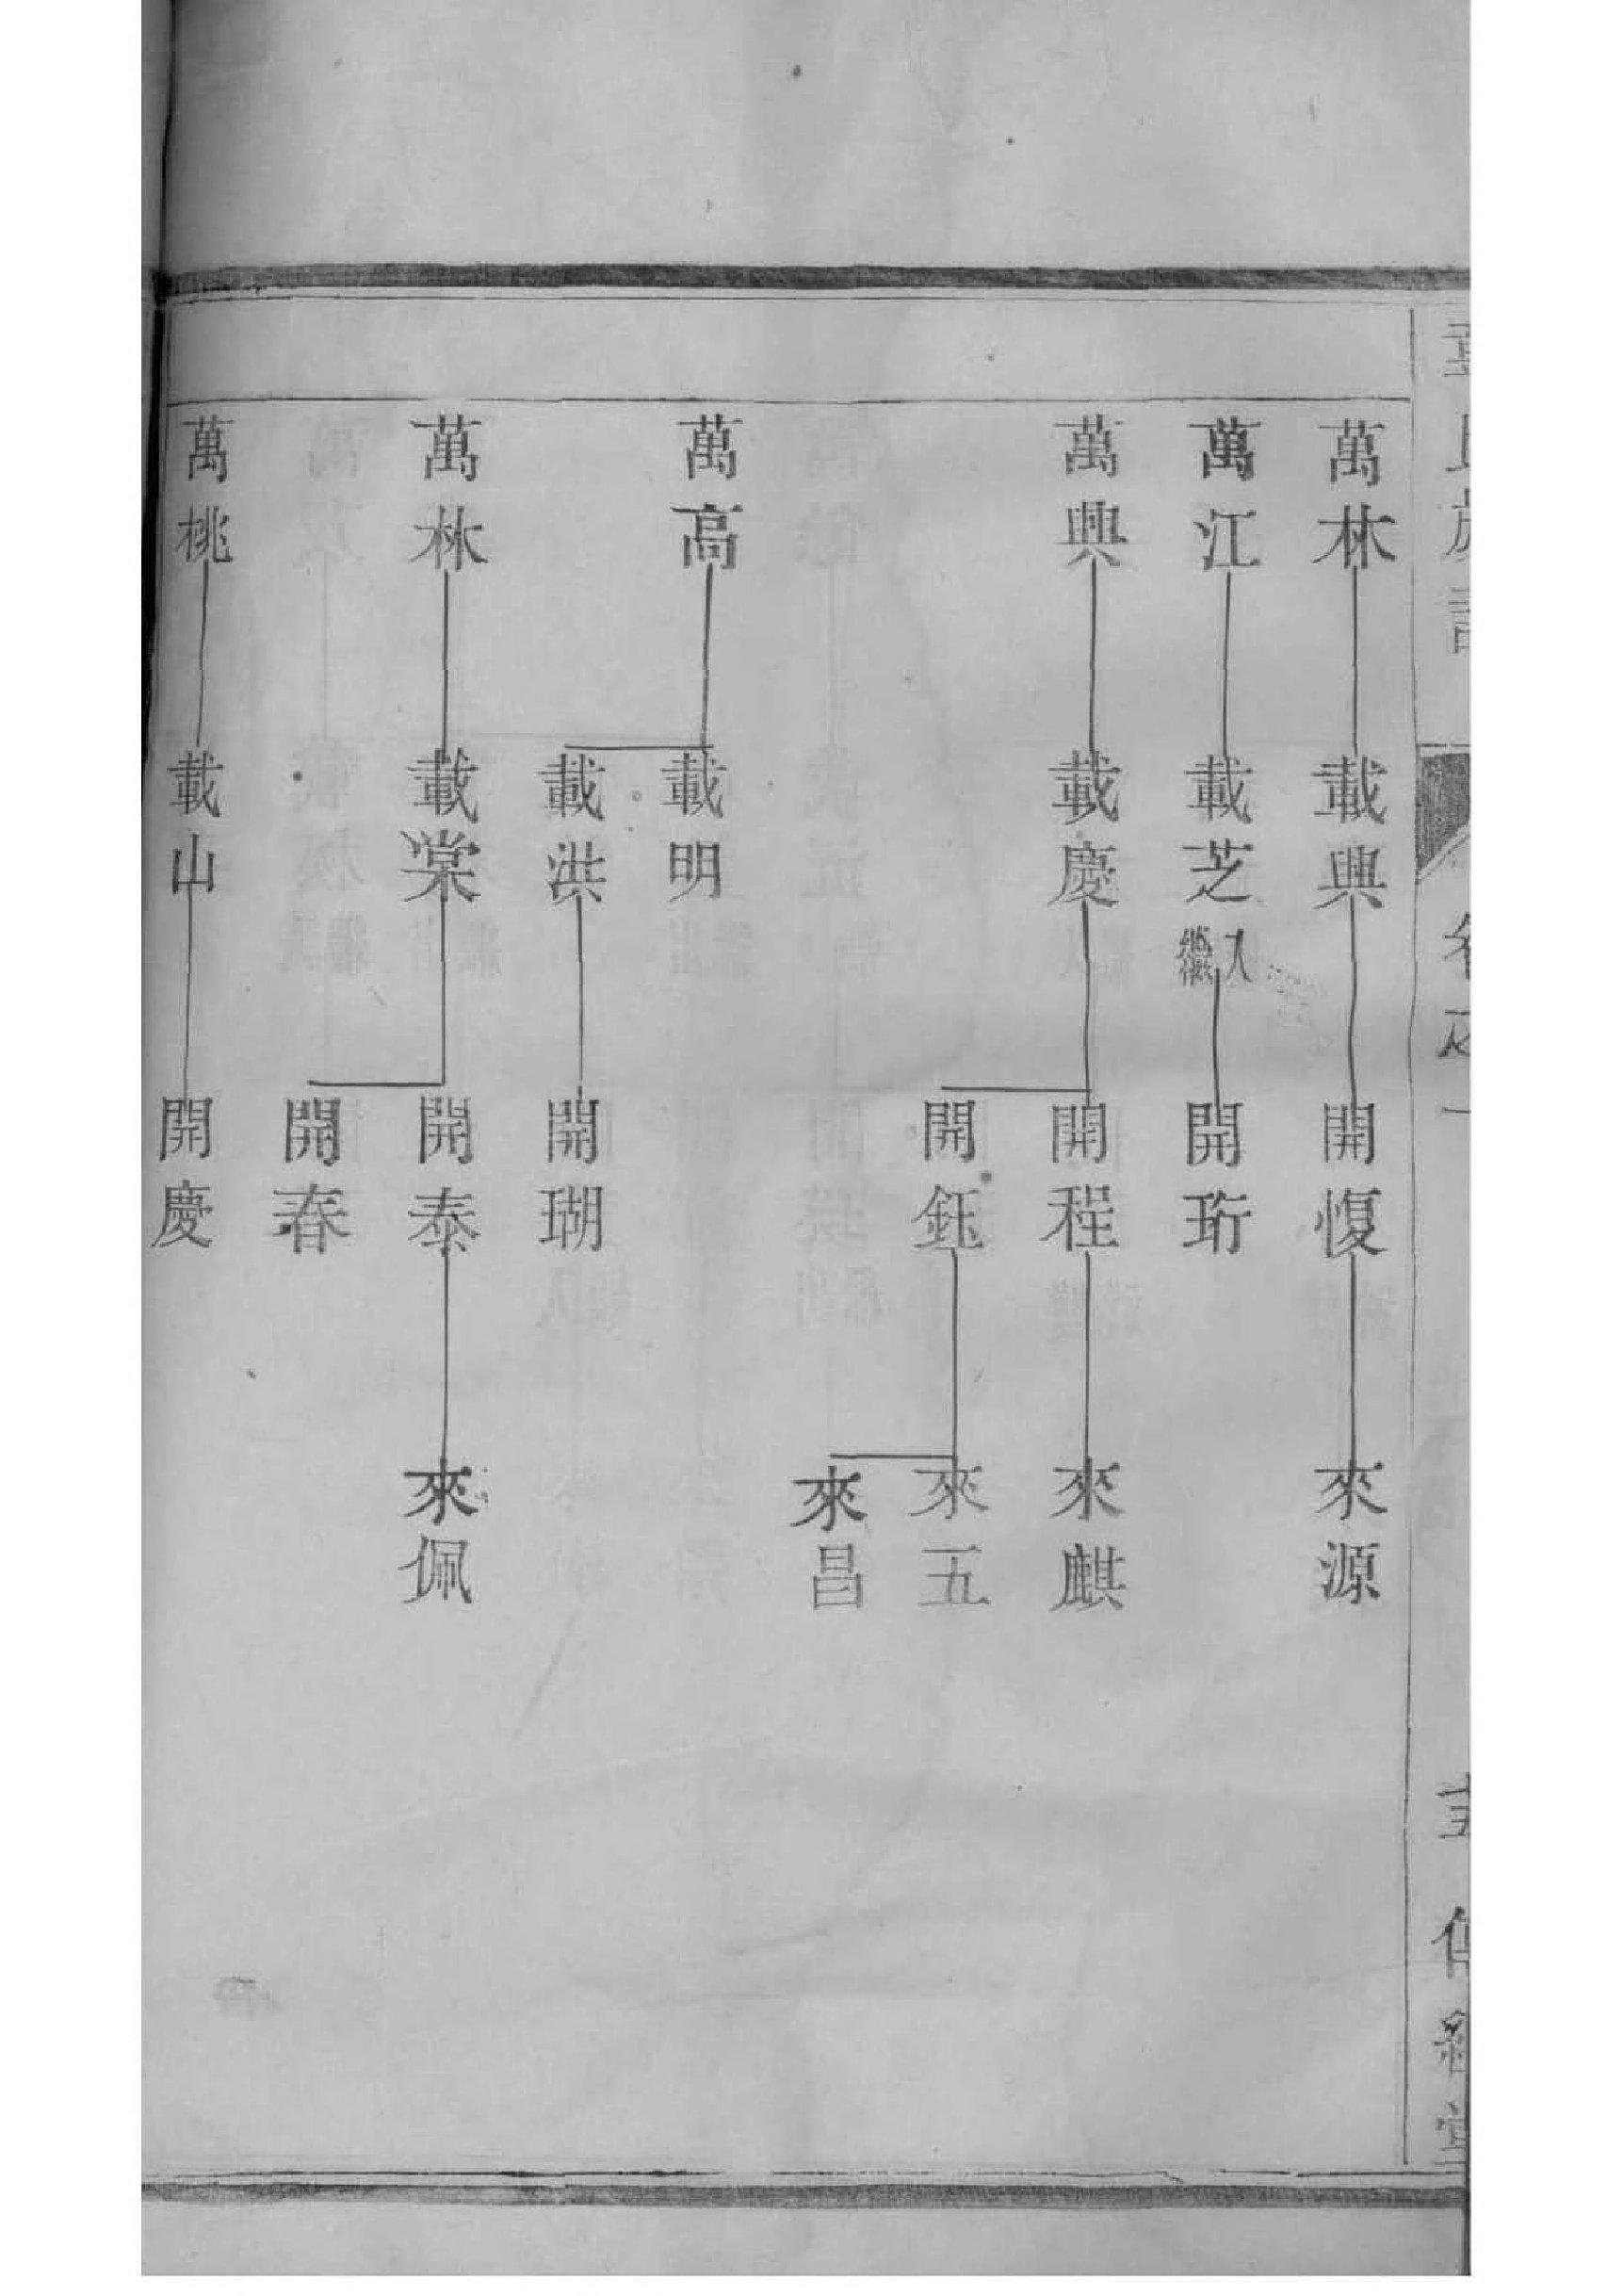 萬林
載興
開愎
來源
萬江
載芝
入繼
開珩
萬興
載慶
開程
來麒
開鈺
來五
來昌
萬高
載明
載洪
開瑚
萬林
載棠
開泰
來佩
開春
萬桃
載山
開慶